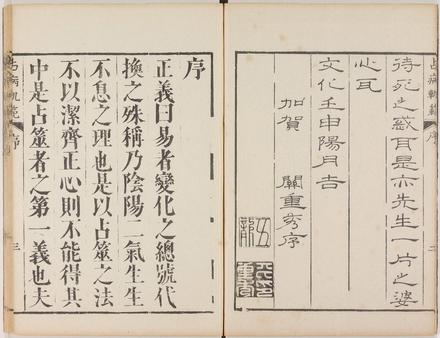 占病軌範
序
待死之惑耳是亦先生一片之婆
心瓦
文化壬申陽月吉
加賀　關重秀序
序
正義曰易者變化之總號代
換之殊稱乃陰陽二氣生生
不息之理也是以占筮之法
不以潔齊正心則不能得其
中是占筮者之第一義也夫
占病軌範
序
三